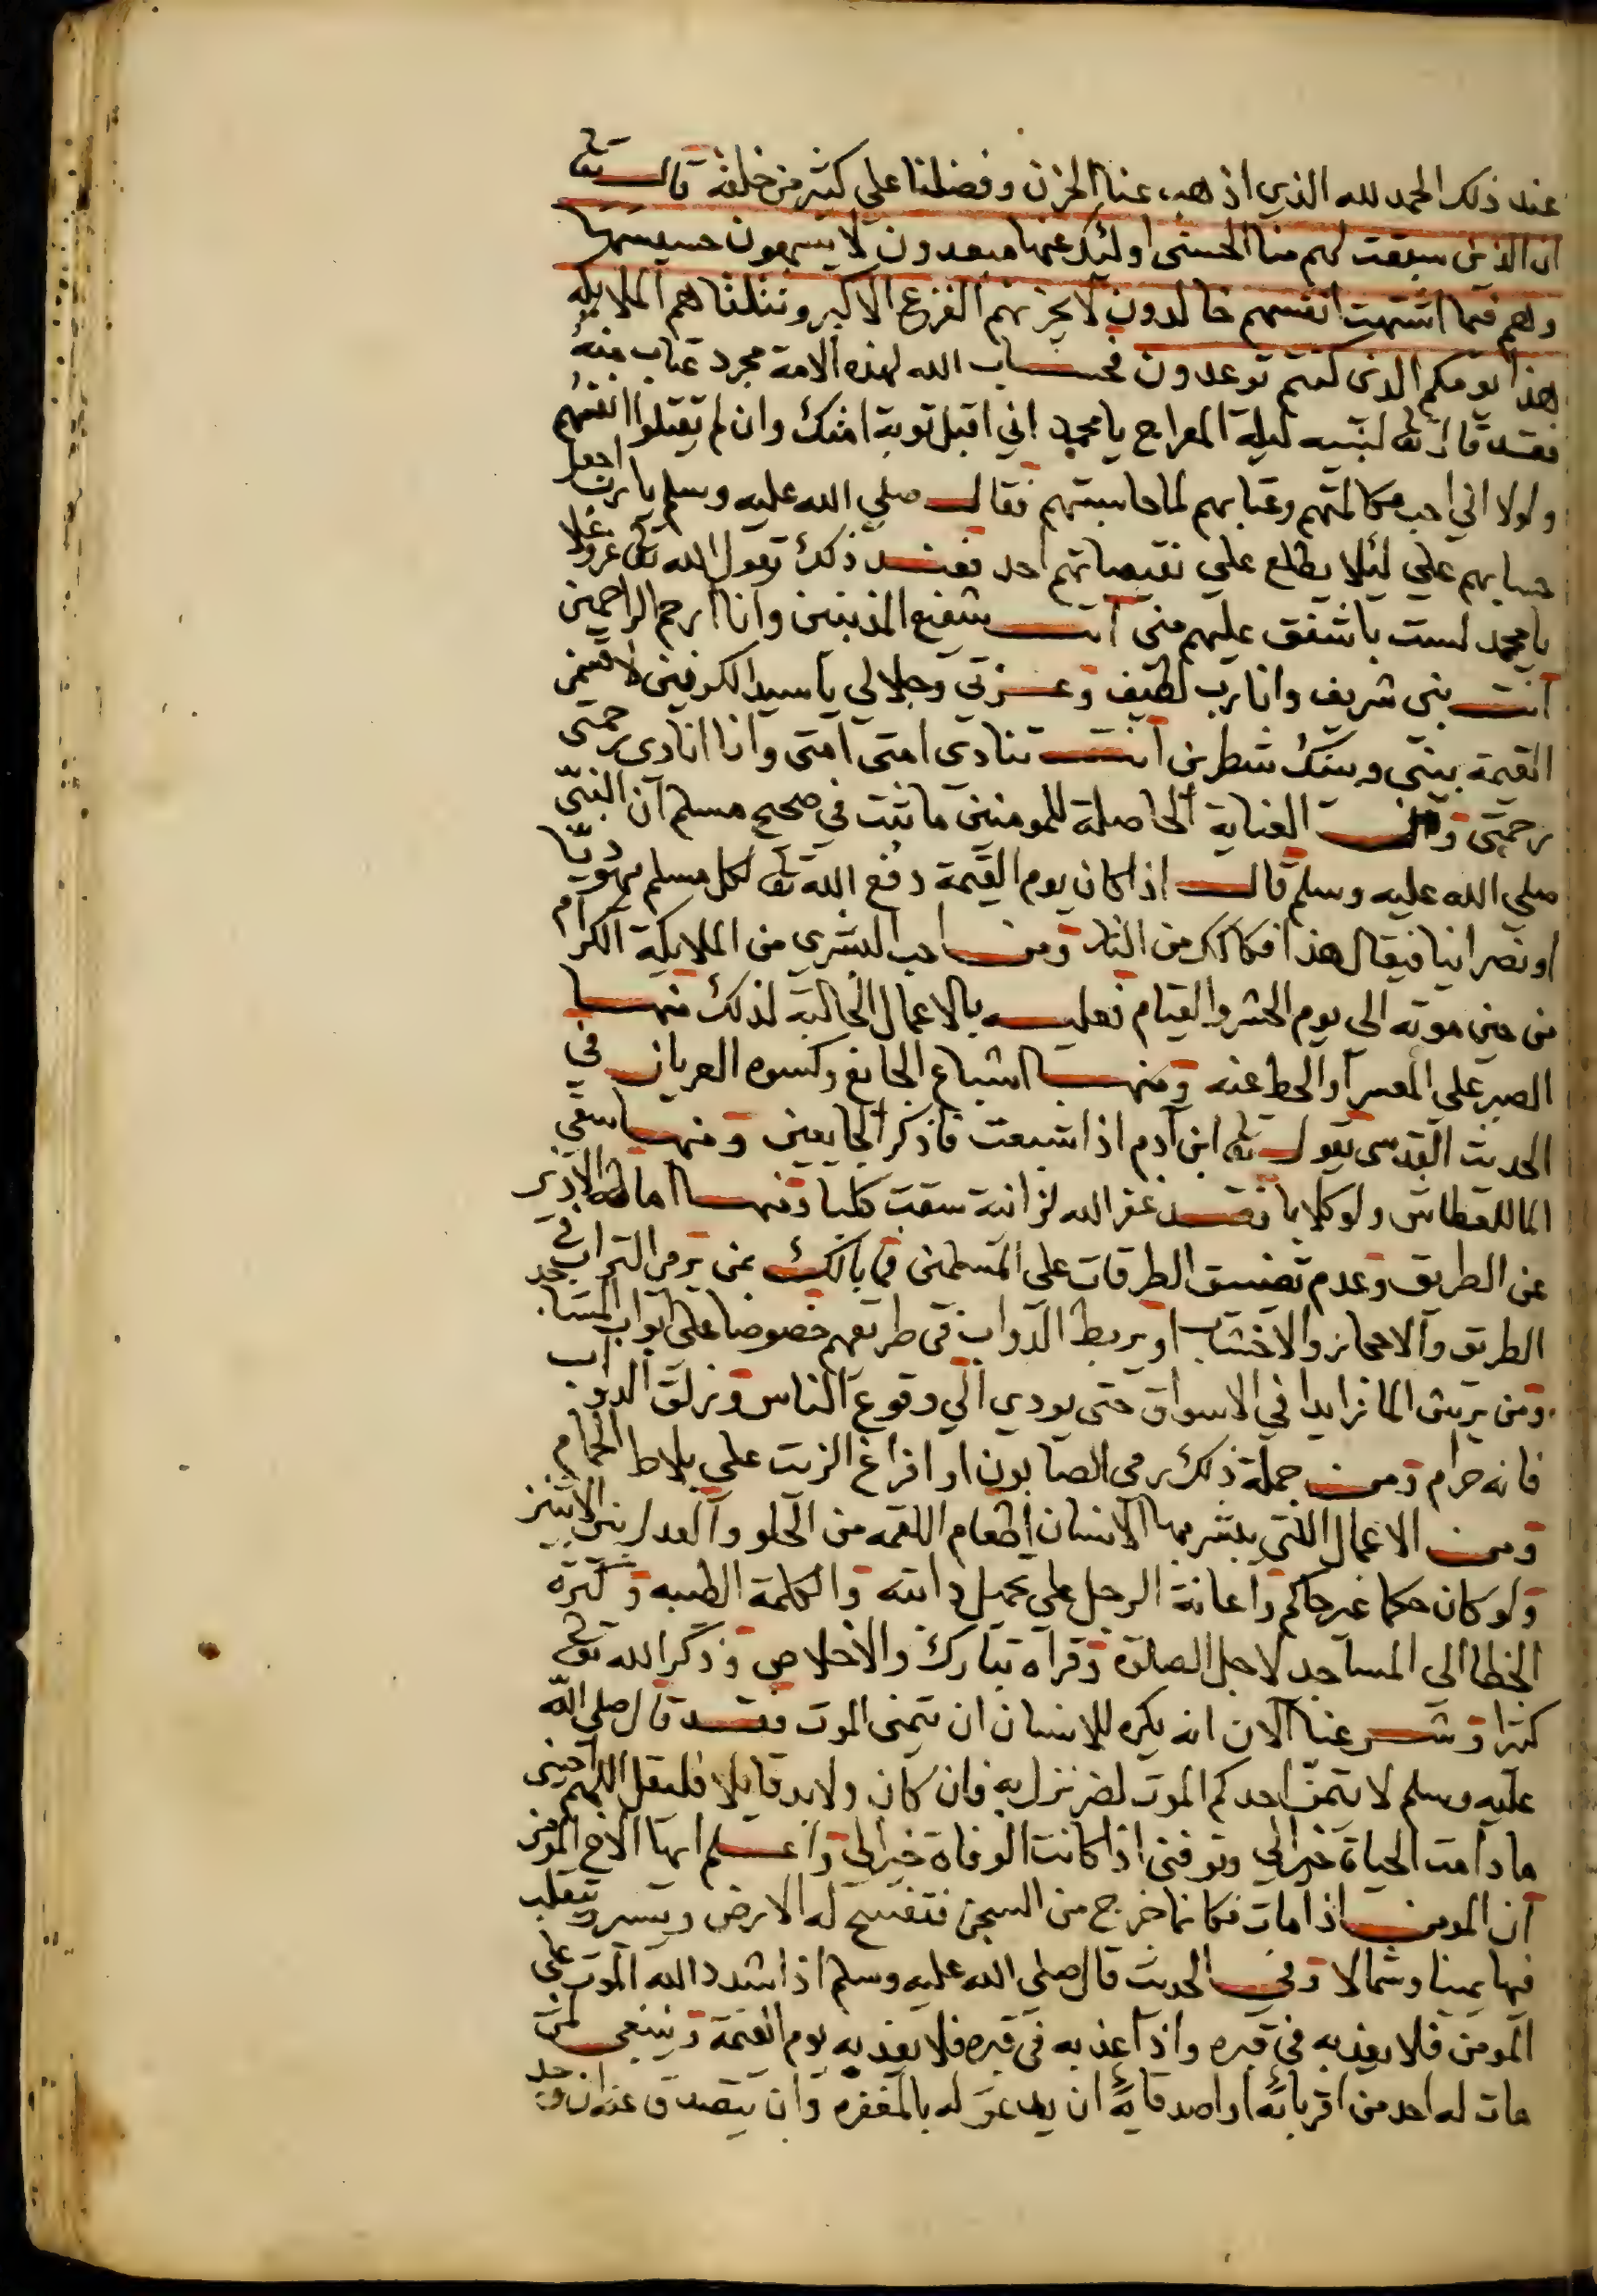 عند ذلك الحمد لله الذي اذهب عنا الحزن وفضلنا على كثير من خلقه قال تعا
ان الذين سبقت لهم منا الحسنى اوليك عنها مبعدون لا يسمعون حسيسها
وهم فيما اشتهت انفسهم خالدون لا يحزنهم الفزع الاكبر وتتلقاهم الملايكه
هذا يومكم الذى كنتم توعدون فحساب الله لهذه الامة مجرد عتاب منه
فقد قال تعا لنبيه ليلة المعراج يا محمد اني اقبل توبة امتك وان لم يقتلوا انفسهم
ولولا اني احب مكالمتهم وعتابهم لما حاسبتهم فقال صلي الله عليه وسلم يا رب اجعل
حسابهم علي ليلا يطلع علي نقيصاتهم احد فعند ذلك يقول الله تعا عز وعلا
يا محمد لست باشفق عليهم منى انت شفيع المذنبين وانا ارحم الراحمين
انت نبى شريف وانا رب لطيف وعزتى وجلالي يا سيد الكونين لاقسمن
القيمة بينى وبينك شطرين انت تنادى امتى امتى وانا انادى رحمتى
رحمتى ومن العناية الحاصلة للمومنين ما ثبت في صحيح مسلم ان النبى
صلي الله عليه وسلم قال اذا كان يوم القيمة دفع الله تعا لكل مسلم يهوديا
او نصرانيا فيقال هذا فكاكك من النار ومن احب البشرى من الملايكة الكرام
من حين موته الى يوم الحشر والقيام فعليه بالاعمال الجالبة لذلك منها
الصبر على المعسر او الحط عنه ومنها اشباع الجايع وكسوه العريان في
الحديث القدسى يقول تعا ابن ادم اذا شبعت فاذكر الجايعين ومنها سقى
الما للعطاش ولو كلابا فقد غفر الله لزانية سقت كلبا ومنها اماطة الاذى
عن الطريق وعدم تضييق الطرقات على المسلمين فما بالك بمن يرمى التراب في
الطريق والاحجار والاخشاب او يربط الدواب في طريقهم خصوصا على ابواب المساجد
ومن يرش الما زايدا في الاسواق حتى يودي الي وقوع الناس وزلق الدواب
فانه حرام ومن جملة ذلك رمى الصابون او افراغ الزيت علي بلاط الحمام
ومن الاعمال التي يبشر بها الانسان اطعام اللقمه من الحلو والعدل بين الاثنين
ولو كان حكما غير حاكم واعانة الرجل على تحميل دابته والكلمة الطيبه وكثره
الخطا الى المساجد لاجل الصلاة وقراه تبارك والاخلاص وذكر الله تعا
كثيرا وشرعنا الان انه يكره للانسان ان يتمنى الموت فقد قال صلي الله
عليه وسلم لا يتمن احدكم الموت لضر نزل به فان كان ولابد قايلا فليقل اللهم احينى
ما دامت الحياة خيرا لي وتوفنى اذا كانت الوفاة خيرا لي واعلم ايها الاخ المومن
ان المومن اذا مات فكانما خرج من السجن فتفسح له الارض ويسر ويتقلب
فيها يمينا وشمالا وفي الحديث قال صلى الله عليه وسلم اذا شدد الله الموت على
المومن فلا يعذبه في قبره واذا عذبه في قبره فلا يعذبه يوم القيمة وينبغى لمن
مات له احد من اقربائه او اصدقائه ان يدعو له بالمغفره وان يتصدق عنه